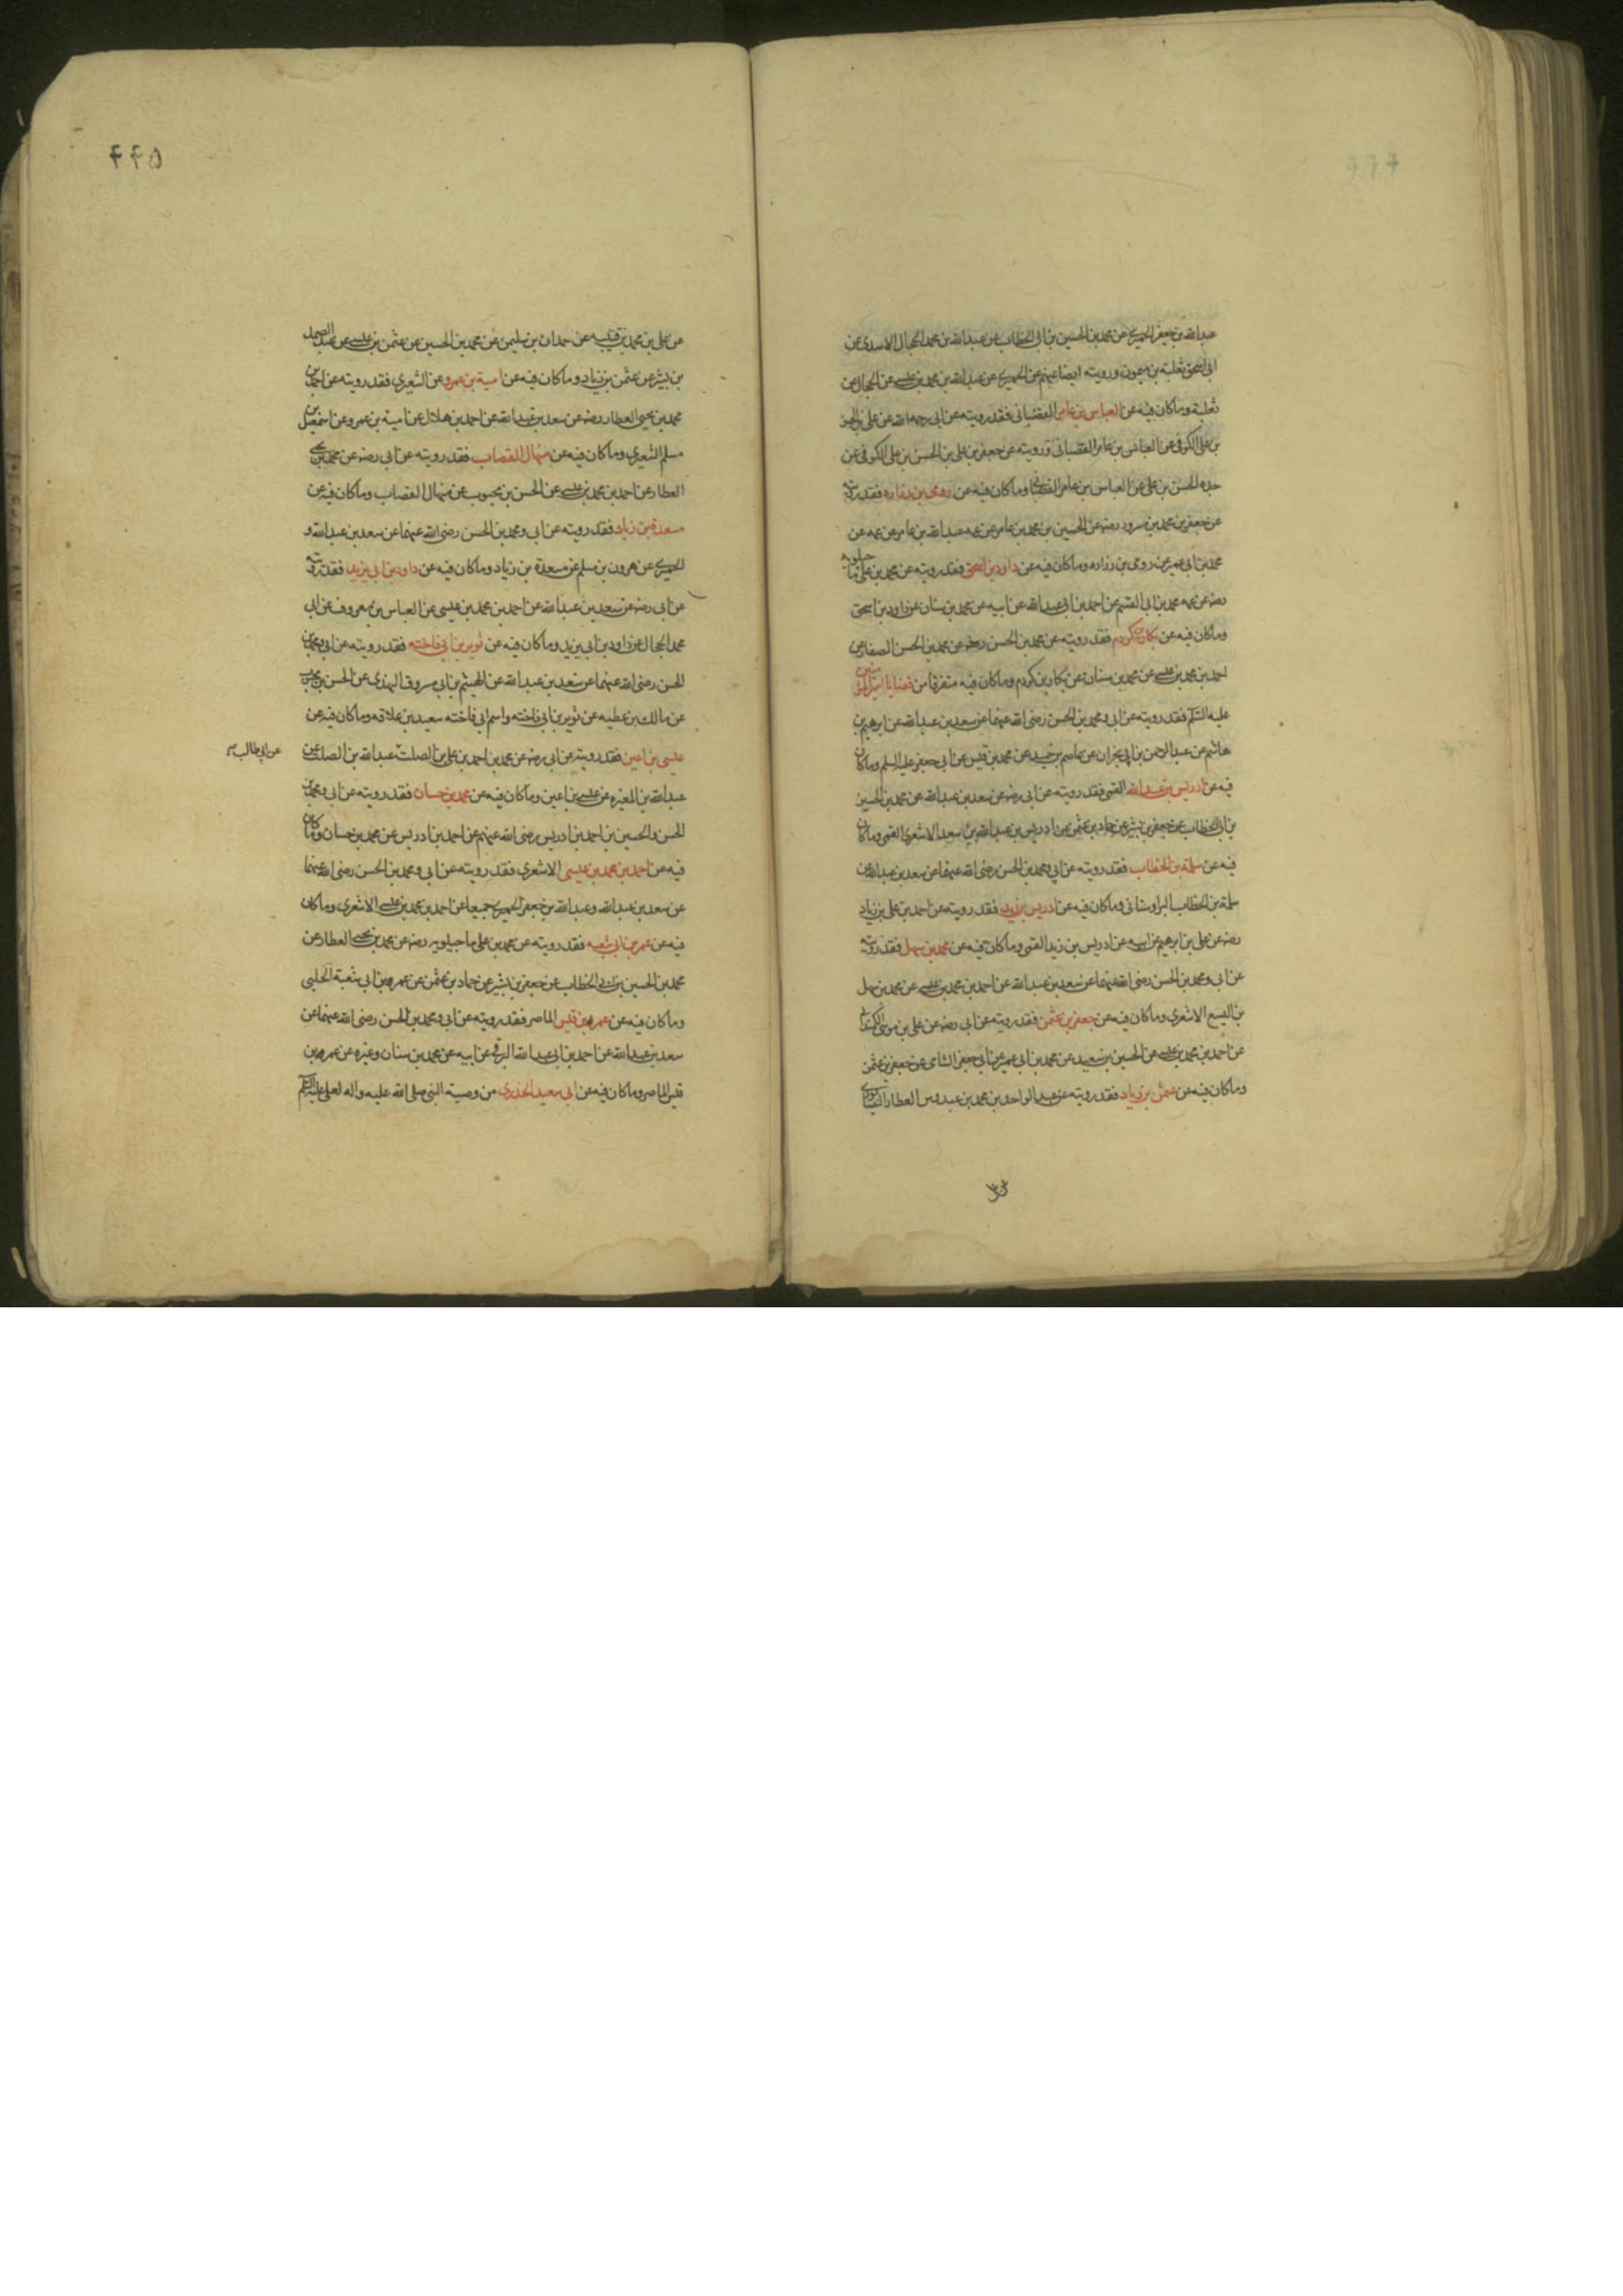 عبدالله بن جعفر الحميرى عن محمد بن الحسين بن ابى الخطاب عن عبدالله بن محمد الحجال الاسدى عن
ابى اسحق ثعلبة بن ميمون ورويته ايضا عنهم عن الحميرى عن عبدالله بن محمد بن عيسى عن الحجال عن
ثعلبة وماكان فيه عن العباس بن عامر القصبانى فقد رويته عن ابى رحمه الله عن على بن الحسن
بن على الكوفى عن العباس بن عامر القصبانى ورويته عن جعفر بن على بن الحسن بن على الكوفى عن
جده الحسن بن على عن العباس بن عامر القصبانى وماكان فيه عن رومى بن زراره فقد رويته
عن جعفر بن محمد بن مسرور رضه عن الحسين بن محمد بن عامر عن عمه عبدالله بن عامر عن
محمد بن ابى عمير عن رومى بن زراره وماكان فيه عن داود بن اسحق فقد رويته عن محمد بن على ماجيلويه
رضه عن عمه محمد بن ابى القسم عن احمد بن ابى عبدالله عن ابيه عن محمد بن سنان عن داود بن اسحق
وماكان فيه عن بكار بن كردم فقد رويته عن محمد بن الحسن رضه عن محمد بن الحسن الصفار عن
احمد بن محمد بن عيسى عن محمد بن سنان عن بكار بن كردم وماكان فيه متفرقا من قضايا امير المؤمنين
عليه السلام فقد رويته عن ابى ومحمد بن الحسن رضى الله عنهما عن سعد بن عبدالله عن ابرهيم بن
هاشم عن عبدالرحمن بن ابى نجران عن عاصم بن حميد عن محمد بن قيس عن ابى جعفر عليه السلم وماكان
فيه عن ادريس بن عبدالله القمى فقد رويته عن ابى رضه عن سعد بن عبدالله عن محمد بن الحسين
بن ابى الخطاب عن جعفر بن بشير عن حماد بن عثمن عن ادريس بن عبدالله بن سعد الاشعرى القمى وماكان
فيه عن سلمة بن الخطاب فقد رويته عن ابى ومحمد بن الحسن رضى الله عنهما عن سعد بن عبدالله عن
سلمة بن الخطاب البراوستانى وماكان فيه عن ادريس بن زيد فقد رويته عن احمد بن على بن زياد
رضه عن على بن ابرهيم عن ابيه عن ادريس بن زيد القمى وماكان فيه عن محمد بن سهل فقد رويته
عن ابى ومحمد بن الحسن رضى الله عنهما عن سعد بن عبدالله عن احمد بن محمد بن عيسى عن محمد بن سهل
بن اليسع الاشعرى وماكان فيه عن جعفر بن عثمن فقد رويته عن ابى رضه عن على بن موسى الكمندانى
عن احمد بن محمد بن عيسى عن الحسين بن سعيد عن محمد بن ابى عمير عن ابى جعفر الشامى عن جعفر بن عثمن
وماكان فيه عن عثمن بن زياد فقد رويته عن عبدالواحد بن محمد بن عبدوس العطار النيسابورى
۴۴۵
عن على بن محمد بن قتيبه عن حمدان بن سليمن عن محمد بن الحسين عن عثمن بن عيسى عن عبدالصمد
بن بشير عن عثمن بن زياد وماكان فيه عن امية بن عمرو عن الشعيرى فقد رويته عن احمد بن
محمد بن يحيى العطار رضه عن سعد بن عبدالله عن احمد بن هلال عن امية بن عمرو عن اسمعيل بن
مسلم الشعيرى وماكان فيه عن منهال القصاب فقد رويته عن ابى رضه عن محمد بن يحيى
العطار عن احمد بن محمد بن عيسى عن الحسن بن محبوب عن منهال القصاب وماكان فيه عن
مسعدة بن زياد فقد رويته عن ابى ومحمد بن الحسن رضى الله عنهما عن سعد بن عبدالله و
الحميرى عن هرون بن مسلم عن مسعدة بن زياد وماكان فيه عن داود بن ابى يزيد فقد رويته
عن ابى رضه عن سعد بن عبدالله عن احمد بن محمد بن عيسى عن العباس بن معروف عن ابى
محمد الحجال عن داود بن ابى يزيد وماكان فيه عن ثوير بن ابى فاخته فقد رويته عن ابى ومحمد بن
الحسن رضى الله عنهما عن سعد بن عبدالله عن الهيثم بن ابى مسروق النهدى عن الحسن بن محبوب
عن مالك بن عطيه عن ثوير بن ابى فاخته واسم ابى فاخته سعيد بن علاقه وماكان فيه عن
عيسى بن اعين فقد رويته عن ابى رضه عن محمد بن احمد بن على بن الصلت عبدالله بن الصلت عن
عن ابى طالب
عبدالله بن المغيره عن عيسى بن اعين وماكان فيه عن محمد بن حسان فقد رويته عن ابى ومحمد بن
الحسن والحسين بن احمد بن ادريس رضى الله عنهم عن احمد بن ادريس عن محمد بن حسان وماكان
فيه عن احمد بن محمد بن عيسى الاشعرى فقد رويته عن ابى ومحمد بن الحسن رضى الله عنهما
عن سعد بن عبدالله وعبدالله بن جعفر الحميرى جميعا عن احمد بن محمد بن عيسى الاشعرى وماكان
فيه عن عمر بن ابى شعبه فقد رويته عن محمد بن على ماجيلويه رضه عن محمد بن يحيى العطار عن
محمد بن الحسين بن ابى الخطاب عن جعفر بن بشير عن حماد بن عثمن عن عمر بن ابى شعبة الحلبى
وماكان فيه عن عمر بن قيس الماصر فقد رويته عن ابى ومحمد بن الحسن رضى الله عنهما عن
سعد بن عبدالله عن احمد بن ابى عبدالله البرقى عن ابيه عن محمد بن سنان وغيره عن عمر بن
قيس الماصر وماكان فيه عن ابى سعيد الخدرى من وصية النبى صلى الله عليه واله لعلى عليه السلام